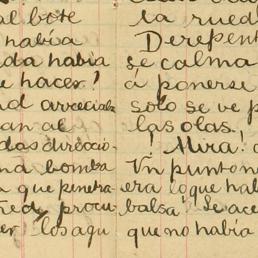 al bote
había
da había
e hacer!
ad arreciaba
an al
das direcció-
na bomba
a que penetra
red, procu-
er los agu
la rued
Derepent
se calma
á ponerse
solo se ve p
las olas.
! Mira!
Un punto n
era lo que hab
balsa! Se ace
que no había